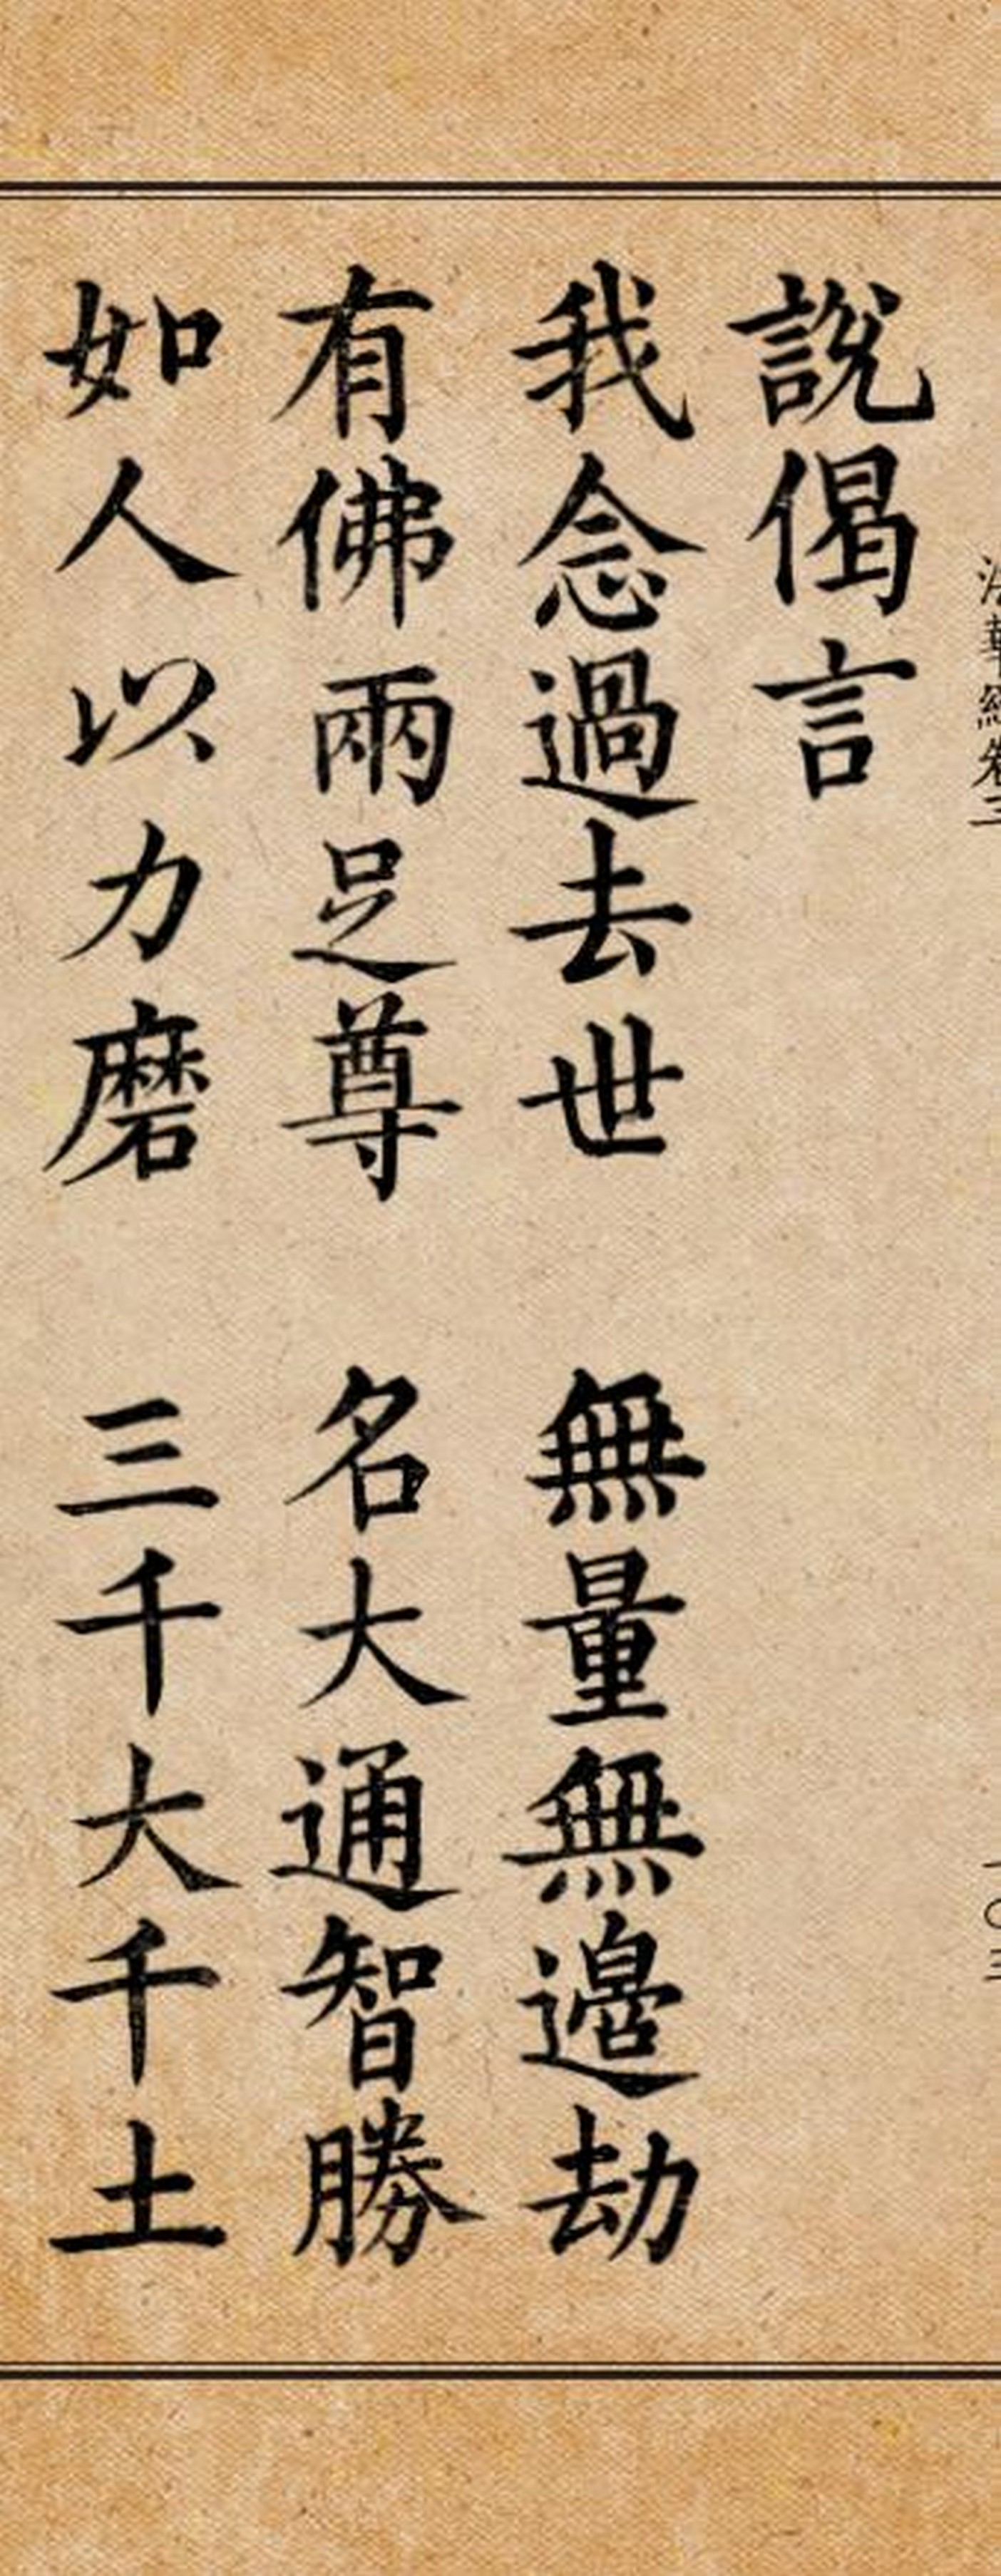 法華經卷三
一〇三
說偈言
我念過去世 無量無邊劫
有佛兩足尊 名大通智勝
如人以力磨 三千大千土